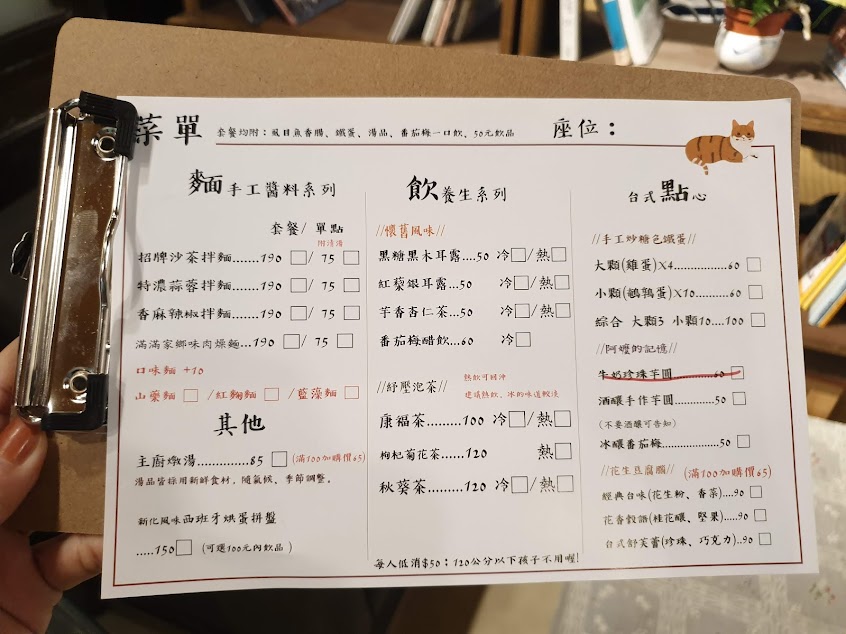 菜單
套餐均附：虱目魚香腸、鐵蛋、湯品、番茄梅一口飲、50元飲品
座位：
麵 手工醬料系列
套餐/ 單點
附清湯
招牌沙茶拌麵.......190 □/ 75 □
特濃蒜蓉拌麵.......190 □/ 75 □
香麻辣椒拌麵.......190 □/ 75 □
滿滿家鄉味肉燥麵...190 □/ 75 □
口味麵 +10
山藥麵 □ /紅麴麵 □ /藍藻麵 □
其他
主廚燉湯..............85 □ (滿100加購價65)
湯品皆採用新鮮食材，隨氣候、季節調整。
新化風味西班牙烘蛋拼盤
.....150□ (可選100元內飲品 )
飲 養生系列
//懷舊風味//
黑糖黑木耳露....50 冷□/熱□
紅藜銀耳露...50 冷□/熱□
芋香杏仁茶...50 冷□/熱□
番茄梅醋飲...60 冷□
//紓壓泡茶//
熱飲可回沖
建議熱飲、冰的味道較淡
康福茶.........100 冷□/熱□
枸杞菊花茶......120 熱□
秋葵茶.........120 冷□/熱□
每人低消$50；120公分以下孩子不用喔!
台式點心
//手工炒糖色鐵蛋//
大顆(雞蛋)X4..............60 □
小顆(鵪鶉蛋)X10........60 □
綜合 大顆3 小顆10....100 □
//阿嬤的記憶//
牛奶珍珠芋圓..........60 □
酒釀手作芋圓..........50 □
(不要酒釀可告知)
冰釀番茄梅..............50 □
//花生豆腐腦// (滿100加購價65)
經典台味(花生粉、香菜)....90 □
花香穀語(桂花釀、堅果).....90 □
台式舒芙蕾(珍珠、巧克力)..90 □